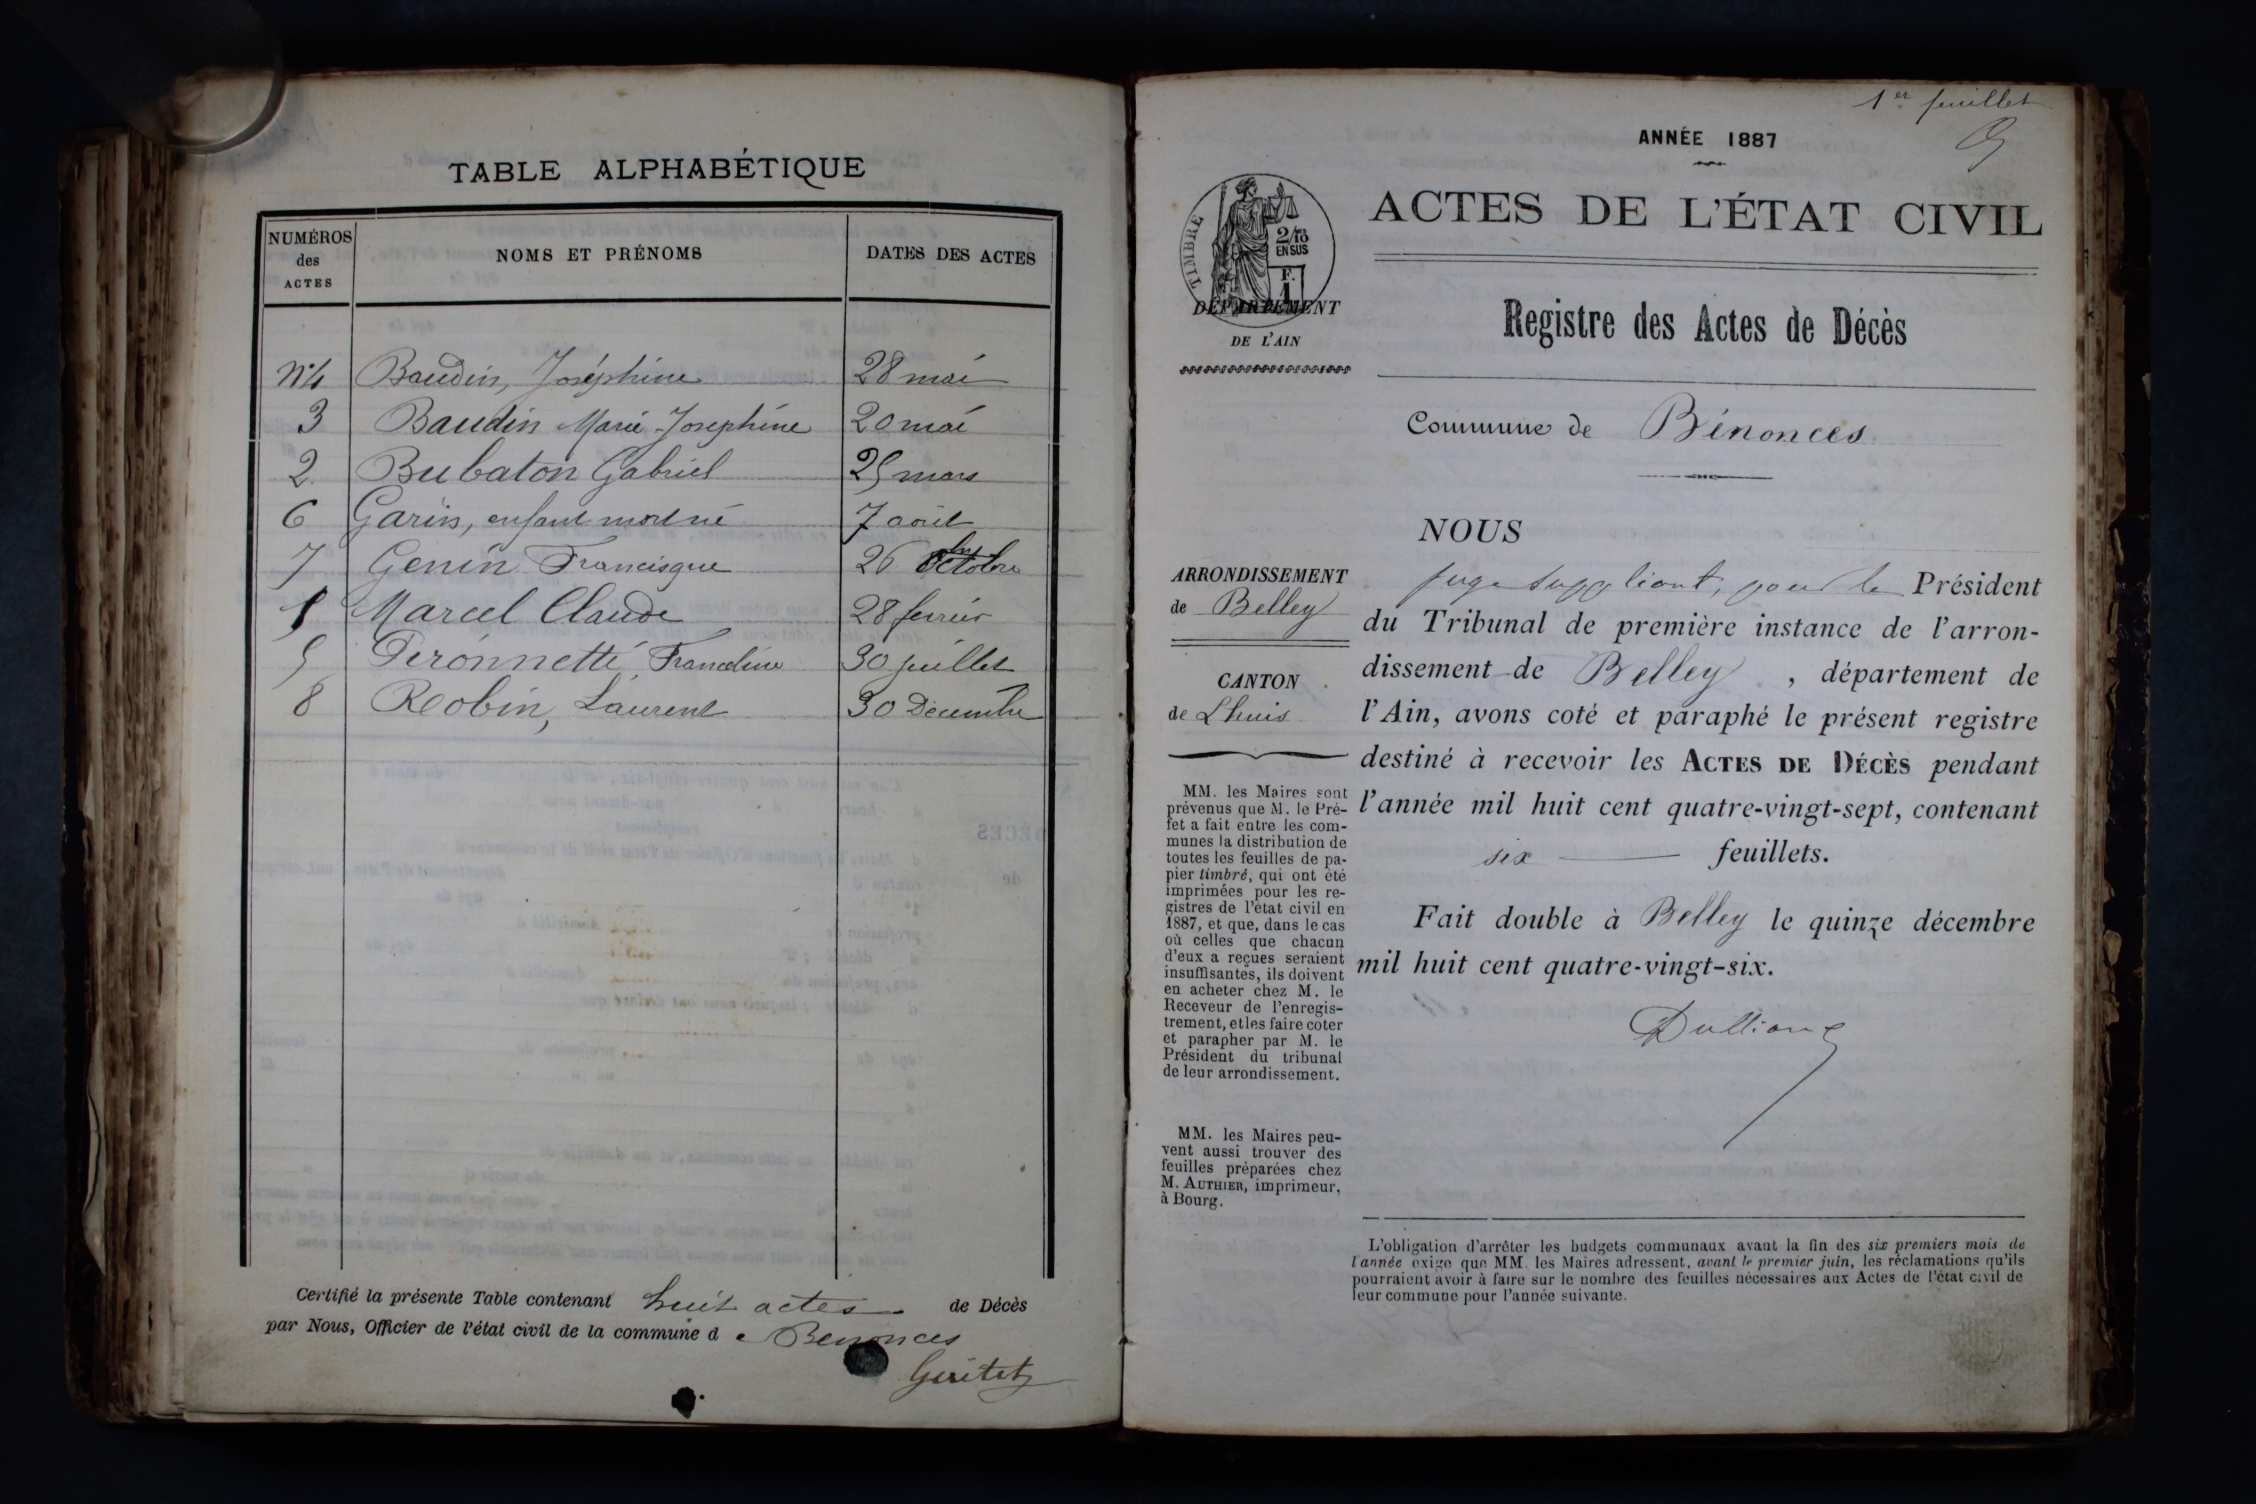 TABLE ALPHABÉTIQUE
NUMÉROS des ACTES
NOMS ET PRÉNOMS
DATES DES ACTES
N°4 Baudin, Joséphine 28 mai
3 Baudin Marie-Josephine 20 mai
2 Bubaton Gabriel 25 mars
6 Garin, enfant mort né 7 août
7 Genin Francisque 26 Octobre
1 Marcel Claude 28 fevrier
5 Peronnette Franceline 30 juillet
8 Robin, Laurent 30 Decembre
Certifié la présente Table contenant huit actes de Décès
par Nous, Officier de l'état civil de la commune d e Benonces
1er feuillet
ANNÉE 1887
TIMBRE
2/10
EN SUS
F.
1
ACTES DE L'ÉTAT CIVIL
DÉPARTEMENT
DE L'AIN
Registre des Actes de Décès
Commune de Bénonces
NOUS
ARRONDISSEMENT
de Belley
CANTON
de Lhuis
juge suppléant, pour le Président
du Tribunal de première instance de l'arron-
dissement de Belley, département de
l'Ain, avons coté et paraphé le présent registre
destiné à recevoir les ACTES DE DÉCÈS pendant
l'année mil huit cent quatre-vingt-sept, contenant
six feuillets.
Fait double à Belley le quinze décembre
mil huit cent quatre-vingt-six.
MM. les Maires sont
prévenus que M. le Pré-
fet a fait entre les com-
munes la distribution de
toutes les feuilles de pa-
pier timbré, qui ont été
imprimées pour les re-
gistres de l'état civil en
1887, et que, dans le cas
où celles que chacun
d'eux a reçues seraient
insuffisantes, ils doivent
en acheter chez M. le
Receveur de l'enregis-
trement, et les faire coter
et parapher par M. le
Président du tribunal
de leur arrondissement.
MM. les Maires peu-
vent aussi trouver des
feuilles préparées chez
M. AUTHIER, imprimeur,
à Bourg.
L'obligation d'arrêter les budgets communaux avant la fin des six premiers mois de
l'année exige que MM. les Maires adressent, avant le premier juin, les réclamations qu'ils
pourraient avoir à faire sur le nombre des feuilles nécessaires aux Actes de l'état civil de
leur commune pour l'année suivante.